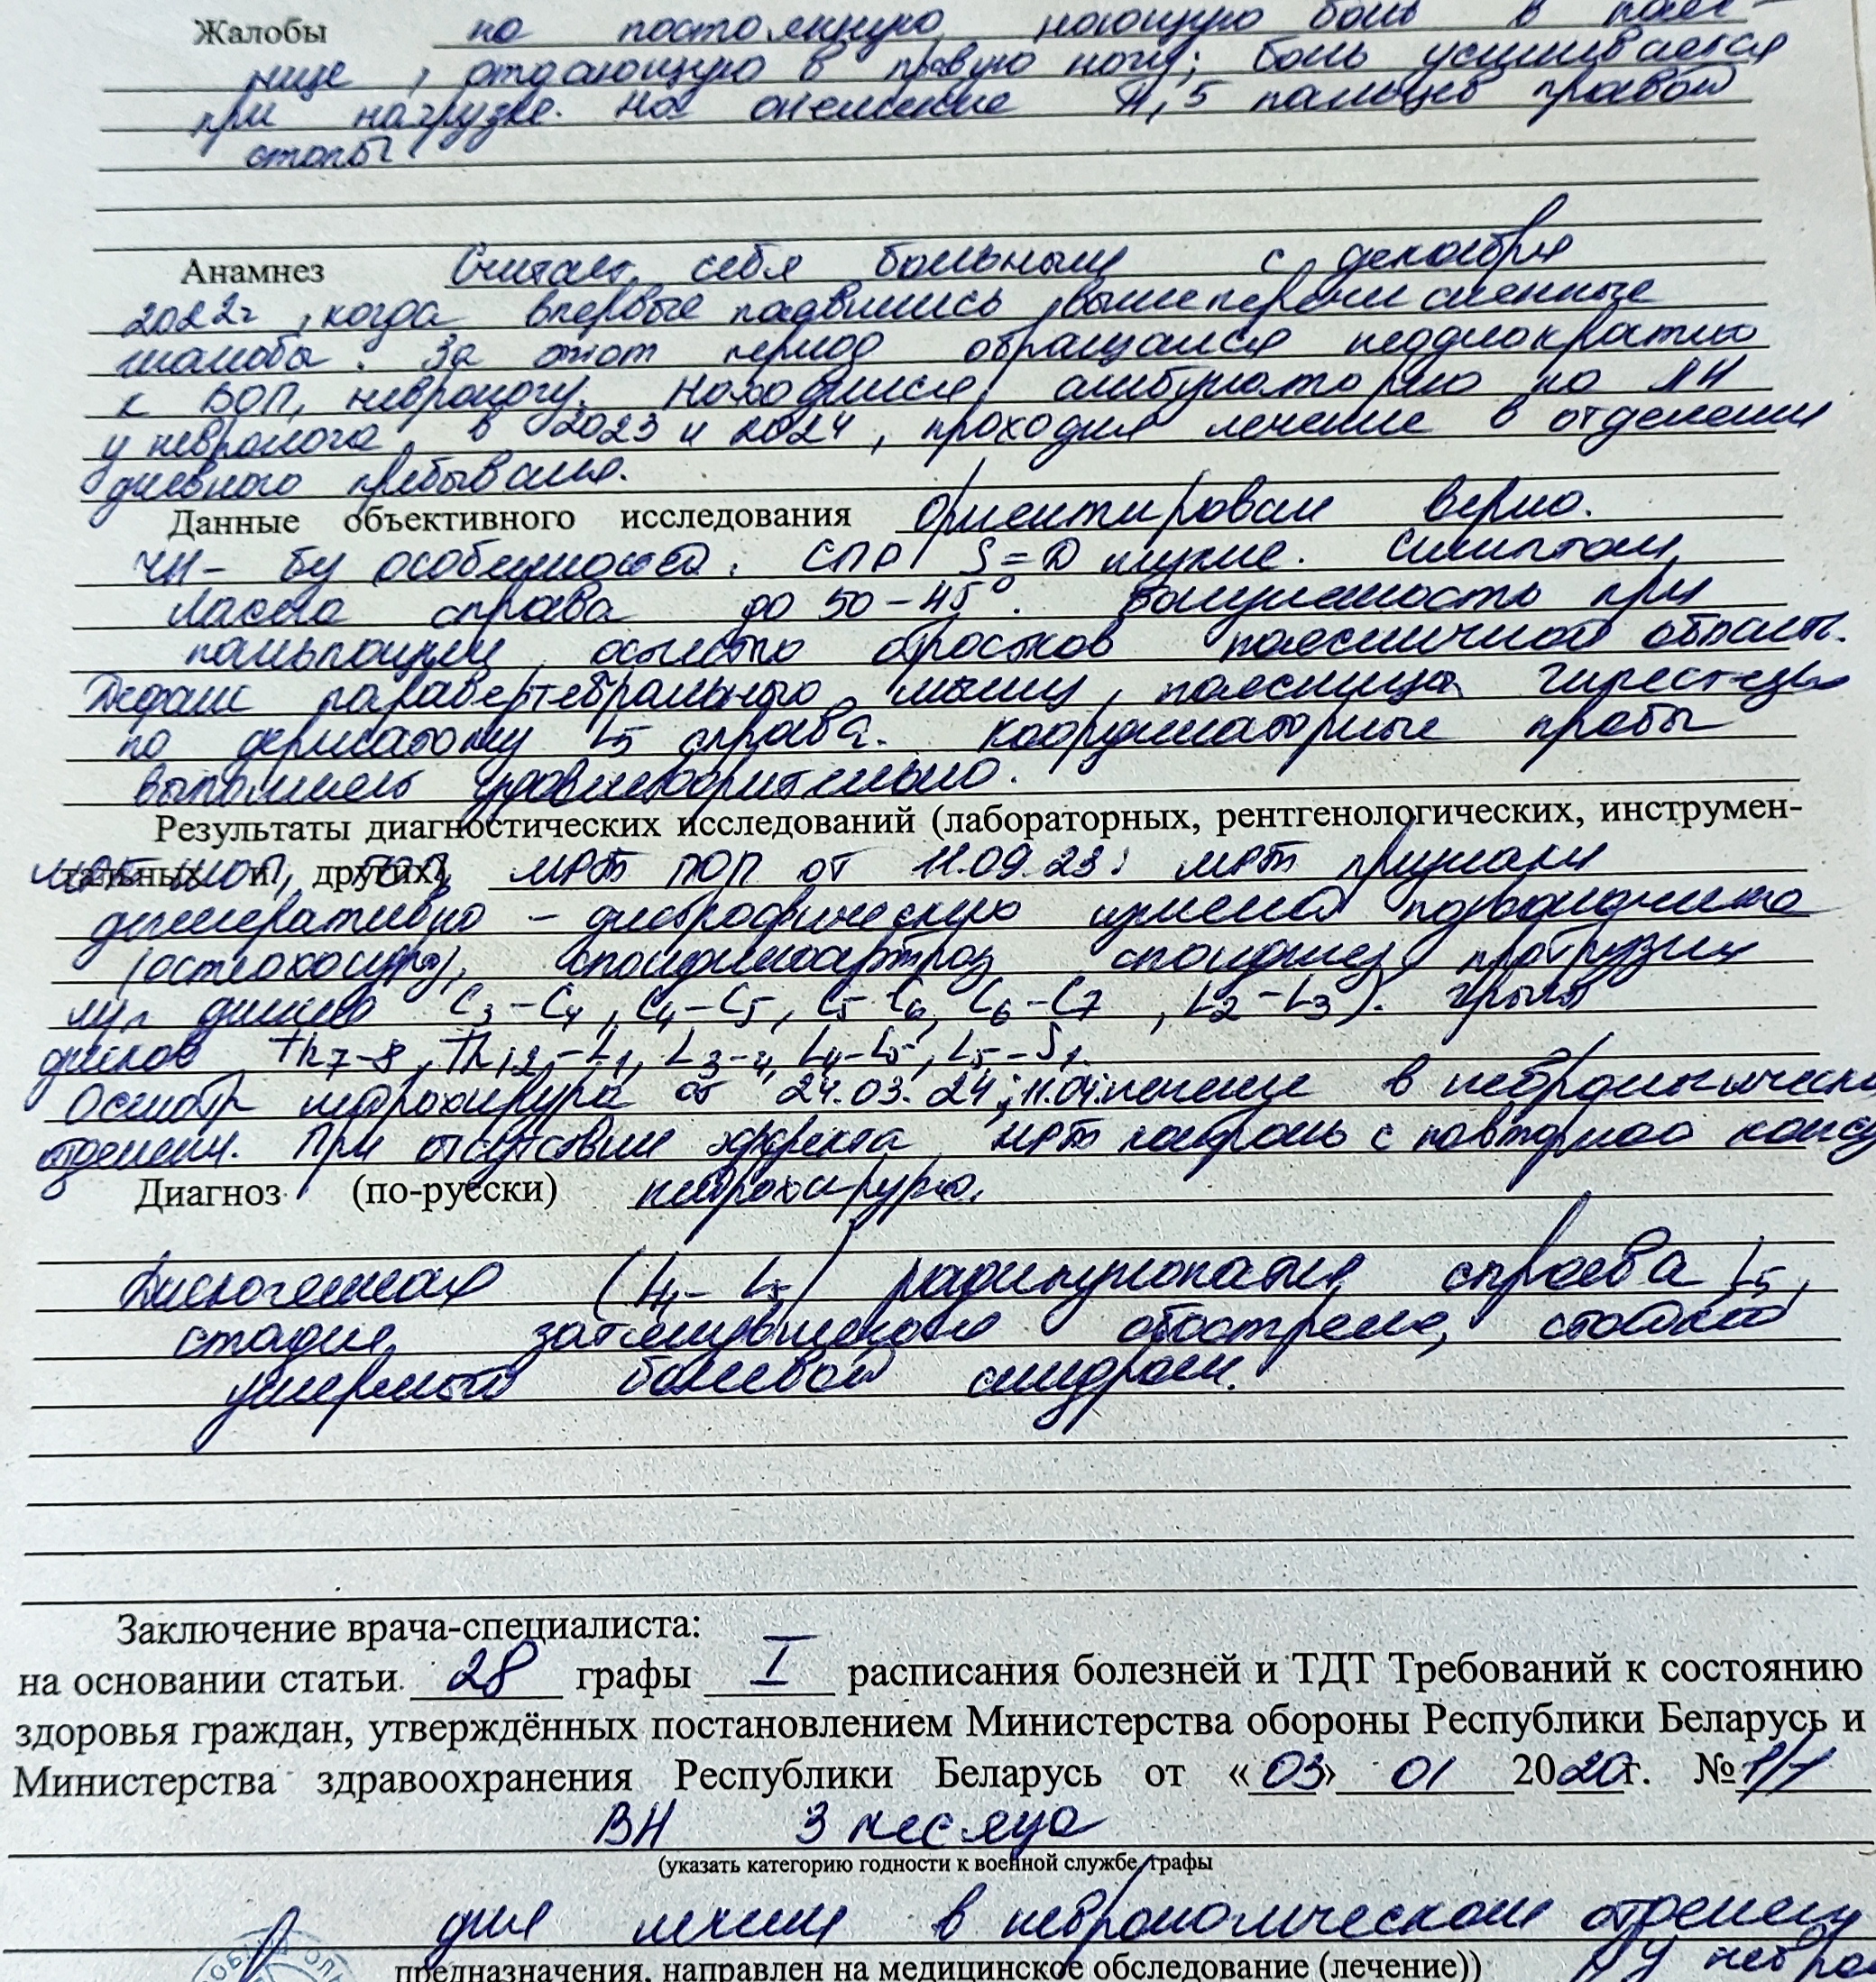 Жалобы на постоянную, ноющую боль в пояс-
нице, отдающую в правую ногу; боль усиливается
при нагрузке. На онемение 4, 5 пальцев правой
стопы
Анамнез Считает себя больным с декабря
2022г, когда впервые появились вышеперечисленные
жалобы. За этот период обращался неоднократно
к ВОП, неврологу. Находился амбулаторно на ЛН
у невролога, в 2023 и 2024, проходил лечение в отделении
дневного пребывания.
Данные объективного исследования Ориентирован верно.
ЧН - б/у особенностей. СПР S=D живые. Симптом
Ласега справа до 50-45°. Болезненность при
пальпации остистых отростков поясничной области.
Дефанс паравертебральных мышц, поясница. Гипестезия
по дерматому L5 справа. Координаторные пробы
выполняет удовлетворительно.
Результаты диагностических исследований (лабораторных, рентгенологических, инструмен-
тальных и других) МРТ ПОП от 11.09.23: МРТ признаки
дегенеративно - дистрофических измен. позвоночника
(остеохондроз), спондилоартроз, спондилез, протрузии
м/п дисков C3-C4, C4-C5, C5-C6, C6-C7, L2-L3). Грыжи
дисков Th7-8, Th12-L1, L3-4, L4-L5, L5-S1.
Осмотр нейрохирурга от 24.03.24; 11.04: лечение в неврологическом
отделении. При отсутствии эффекта МРТ контроль с повторной конс
Диагноз (по-русски) нейрохирурга.
Дискогенная (L4-L5) радикулопатия справа L5,
стадия затянувшегося обострения, стойкий
умеренный болевой синдром.
Заключение врача-специалиста:
на основании статьи 28 графы I расписания болезней и ТДТ Требований к состоянию
здоровья граждан, утверждённых постановлением Министерства обороны Республики Беларусь и
Министерства здравоохранения Республики Беларусь от «03» 01 2020г. № 1/1
ВН 3 месяца
(указать категорию годности к военной службе, графы
для лечения в неврологическом отделении
предназначения, направлен на медицинское обследование (лечение))